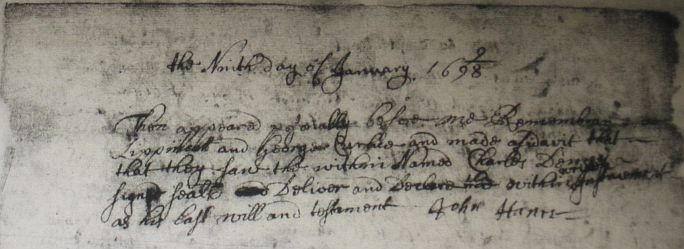 the Ninth day of January 169 9/8
Then appeared personally before me Remembrance
Lippincott and George and made afidavit that
that they saw the within Named Charles
signe seale Deliver and Declare the within
as his last will and testament John